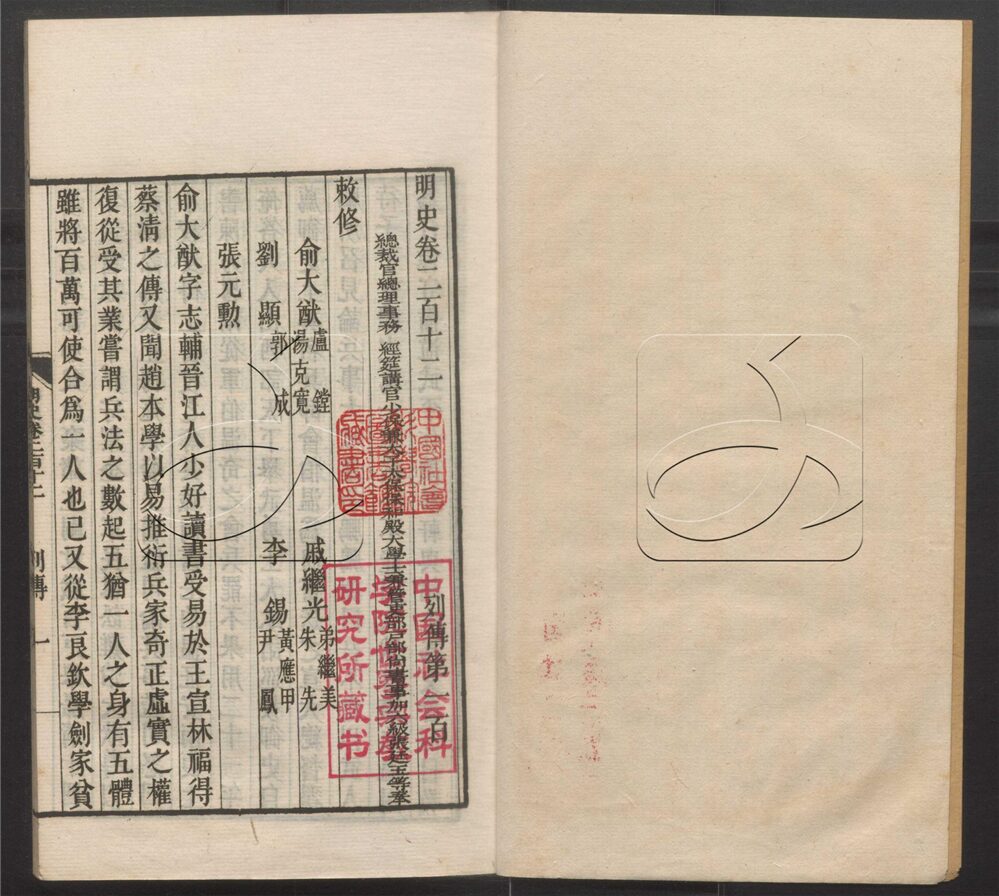 明史卷二百十二 列傳第一百
總裁官總理事務 經筵講官少保兼太子太保保和殿大學士兼管吏部戶部尚書事加六級張廷玉等奉
敕修
俞大猷 盧鏜 湯克寬 戚繼光 弟繼美 朱先
劉顯 郭成 李錫 黃應甲 尹鳳
張元勲
俞大猷字志輔晉江人少好讀書受易於王宣林福得
蔡清之傳又聞趙本學以易推衍兵家奇正虛實之權
復從受其業嘗謂兵法之數起五猶一人之身有五體
雖將百萬可使合爲一人也已又從李良欽學劍家貧
明史卷二百十二 列傳 一
中國社會
藏書印
中国社会科
学院世界历史
研究所藏书